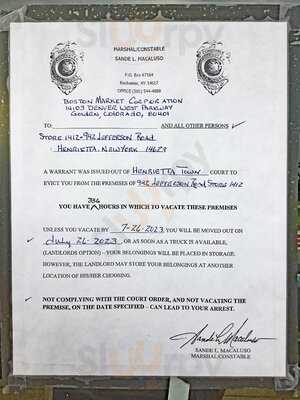 MARSHAL/CONSTABLE
SANDE L. MACALUSO
P.O. Box 67164
Rochester, NY 14617
OFFICE (585) 544-4888
BOSTON MARKET CORPORATION
14103 DENVER WEST PARKWAY
GOLDEN, COLORADO, 80401
TO: AND ALL OTHER PERSONS
STORE 1412-942 JEFFERSON ROAD
HENRIETTA, NEWYORK 14623
A WARRANT WAS ISSUED OUT OF HENRIETTA TOWN COURT TO
EVICT YOU FROM THE PREMISES OF 942 JEFFERSON ROAD STORE 1412
336
YOU HAVE ^ HOURS IN WHICH TO VACATE THESE PREMISES
UNLESS YOU VACATE BY 7-26-2023, YOU WILL BE MOVED OUT ON
July 26-2023, OR AS SOON AS A TRUCK IS AVAILABLE,
(LANDLORDS OPTION) – YOUR BELONGINGS WILL BE PLACED IN STORAGE.
HOWEVER, THE LANDLORD MAY STORE YOUR BELONGINGS AT ANOTHER
LOCATION OF HIS/HER CHOOSING.
NOT COMPLYING WITH THE COURT ORDER, AND NOT VACATING THE
PREMISE, ON THE DATE SPECIFIED – CAN LEAD TO YOUR ARREST.
Sande L. Macaluso
SANDE L. MACALUSO
MARSHAL/CONSTABLE